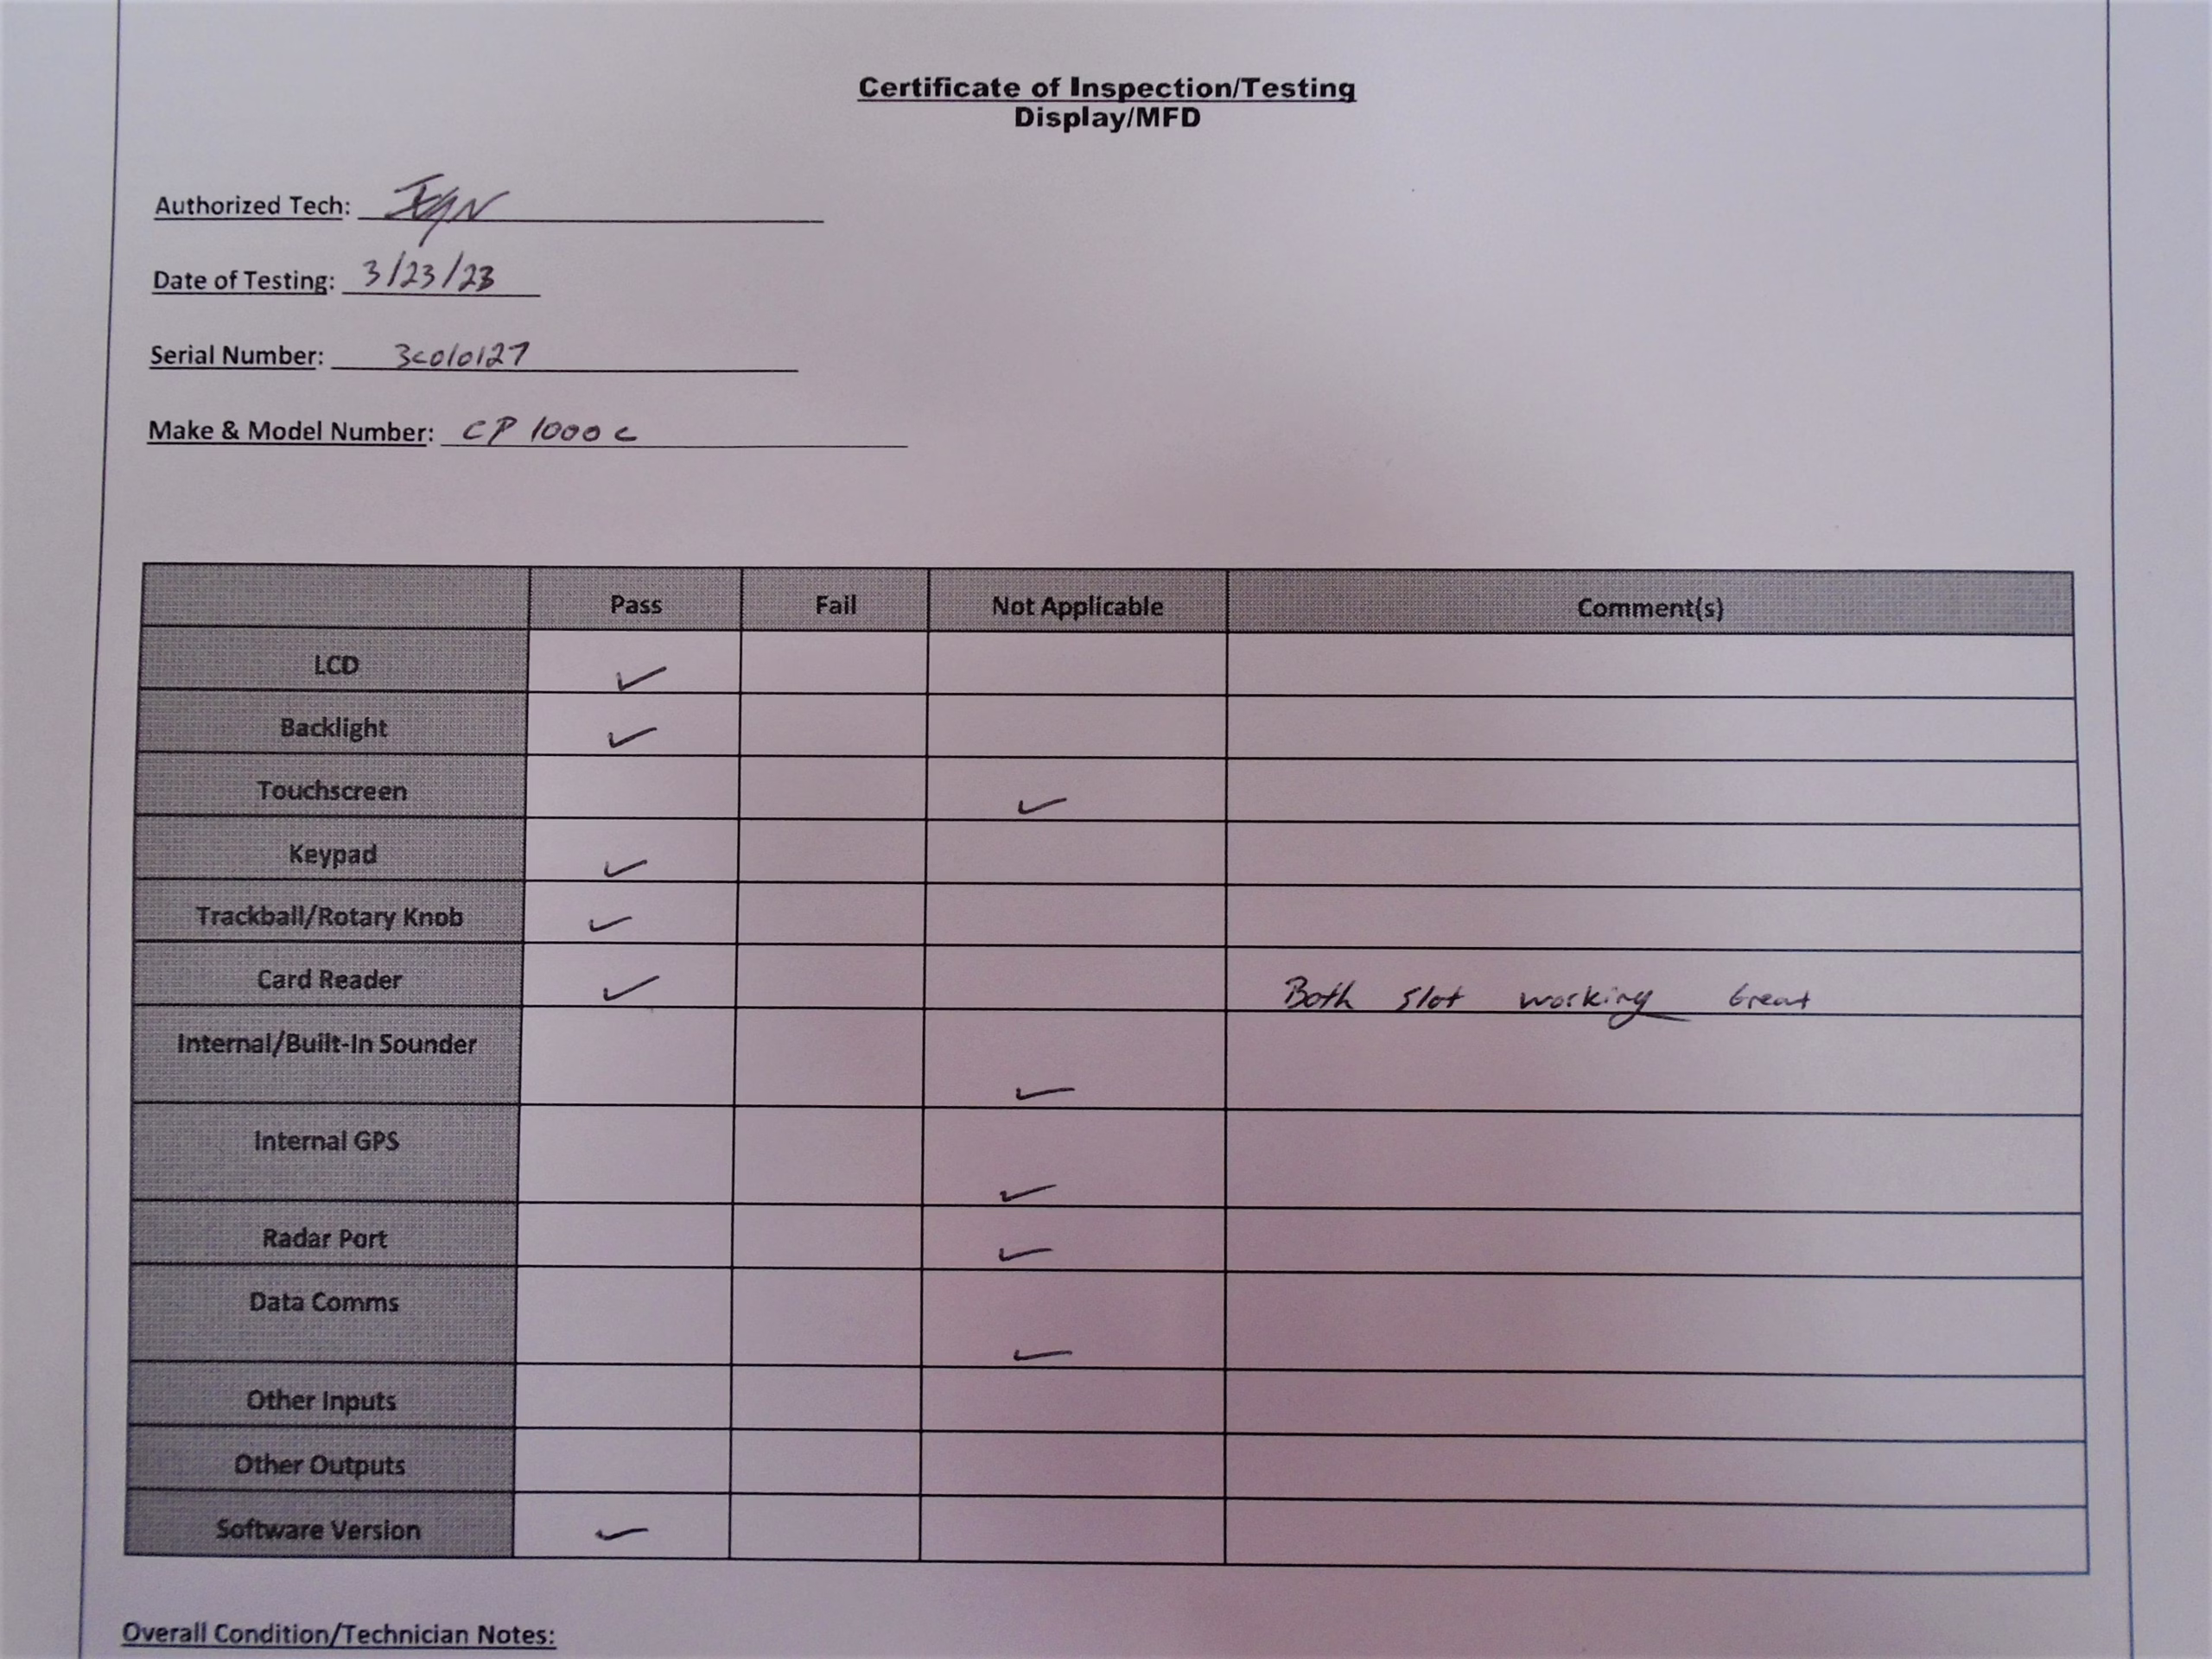 Certificate of Inspection/Testing
Display/MFD
Authorized Tech:
Date of Testing: 3/23/23
Serial Number: 3c010127
Make & Model Number: CP 1000 c
Pass Fail Not Applicable Comment(s)
LCD ✓
Backlight ✓
Touchscreen ✓
Keypad ✓
Trackball/Rotary Knob ✓
Card Reader ✓ Both slot working Great
Internal/Built-In Sounder ✓
Internal GPS ✓
Radar Port ✓
Data Comms ✓
Other Inputs
Other Outputs
Software Version ✓
Overall Condition/Technician Notes: